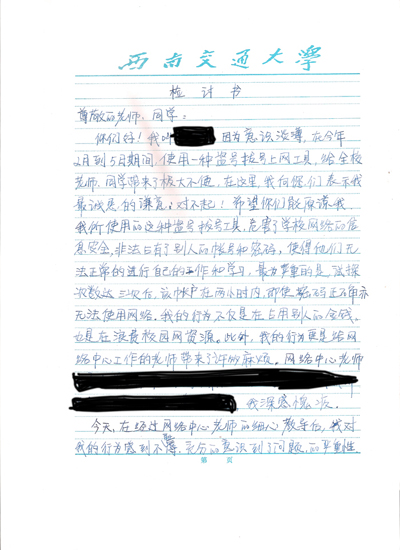 西南交通大学
检讨书
尊敬的老师、同学:
你们好!我叫 因为意识淡薄,在今年
2月到5日期间,使用一种盗号拨号上网工具,给全校
老师、同学带来了极大不便,在这里,我向你们表示我
最诚恳的 :对不起!希望你们能原谅我。
我所使用的这种盗号拨号工具,危害了学校网络的信
息安全,非法占有了别人的帐号和密码,使得他们无
法正常的进行自己的工作和学习,最为严重的是,试探
次数达三次后,该帐户在两小时内,即使密码正确亦
无法使用网络,我的行为不仅是在占用别人的金钱,
也是在浪费校园网资源。此外,我的行为更是给网
络中心工作的老师带来了许多麻烦。网络中心老师
我深感愧疚。
今天,在经过网络中心老师的细心教导后,我对
我的行为感到不 ,充分的意识到了问题的严重性。
第 页